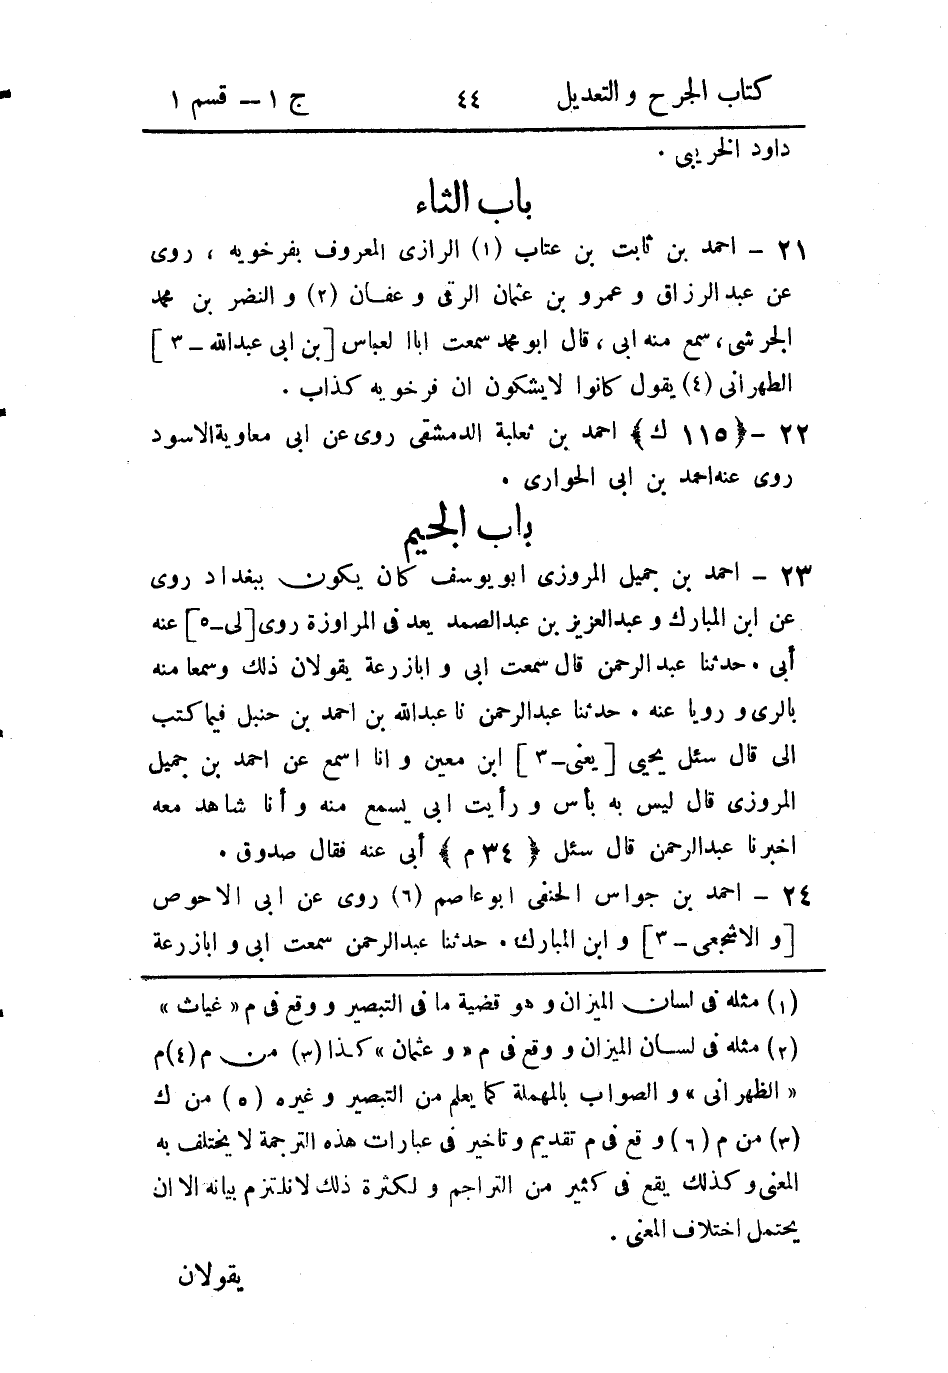 كتاب الجرح و التعديل ٤٤ ج ١ – قسم ١
داود الخريبى .
باب الثاء
٢١ – احمد بن ثابت بن عتاب (١) الرازى المعروف بفرخويه ، روى
عن عبد الرزاق و عمرو بن عثمان الرقى و عفان (٢) و النضر بن محمد
الجرشى ، سمع منه ابى ، قال ابو محمد سمعت ابا العباس [بن ابى عبدالله – ٣ ]
الطهرانى (٤) يقول كانوا لايشكون ان فرخويه كذاب .
٢٢ – ﴿١١٥ ك﴾ احمد بن ثعلبة الدمشقى روى عن ابى معاوية الاسود
روى عنه احمد بن ابى الحوارى .
باب الجيم
٢٣ – احمد بن جميل المروزى ابو يوسف كان يكون ببغداد روى
عن ابن المبارك و عبدالعزيز بن عبدالصمد يعد فى المراوزة روى [لى–٥] عنه
أبى . حدثنا عبدالرحمن قال سمعت ابى و ابازرعة يقولان ذلك وسمعا منه
بالرى و رويا عنه . حدثنا عبدالرحمن نا عبدالله بن احمد بن حنبل فيما كتب
الى قال سئل يحيى [ يعنى–٣ ] ابن معين و انا اسمع عن احمد بن جميل
المروزى قال ليس به بأس و رأيت ابى يسمع منه و أنا شاهد معه
اخبرنا عبدالرحمن قال سئل ﴿ ٣٤ م ﴾ أبى عنه فقال صدوق .
٢٤ – احمد بن جواس الحنفى ابو عاصم (٦) روى عن ابى الاحوص
[و الاشجعى – ٣] و ابن المبارك . حدثنا عبدالرحمن سمعت ابى و ابازرعة
(١) مثله فى لسان الميزان و هو قضية ما فى التبصير و وقع فى م « غياث »
(٢) مثله فى لسان الميزان و وقع فى م « و عثمان » كذا (٣) من م (٤) م
« الظهرانى » و الصواب بالمهملة كما يعلم من التبصير و غيره (٥) من ك
(٣) من م (٦) و قع فى م تقديم و تاخير فى عبارات هذه الترجمة لا يختلف به
المعنى و كذلك يقع فى كثير من التراجم و لكثرة ذلك لانلتزم بيانه الا ان
يحتمل اختلاف المعنى .
يقولان